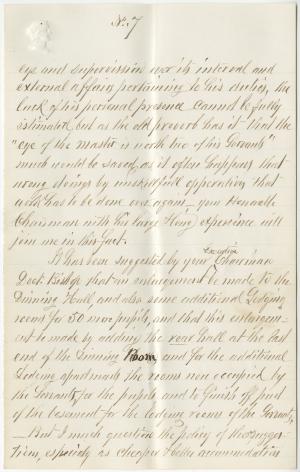 No. 7
eye and supervission over its internal and
external affairs pertaining to his duties, the
lack of his personal presence cannot be fully
estimated, but as the old proverb has it - that the
"eye of the master is worth two of his servants"
much would be saved, as it often happens that
wrong doings by unskillfull opperatives that
work has to be done over again - you Honorable
Chairman with his large Hiring experience will
join me in this fact.
It has been suggested by your Executive Chairman
Doct. Bishop that an enlargement be made to the
Dinning Hall, and also some additional Lodging
room for 50 more pupils, and that this enlargem-
ent be made by adding the rear hall at the East
end of the Dinning Room, and for the additional
Lodging apartments the rooms now occupied by
the Servants for the pupils and to finish off part
of the basement for the lodging rooms of the Servants,
- But I much question the policy of the sugges-
tion, especialy as cheaper & better accommodation